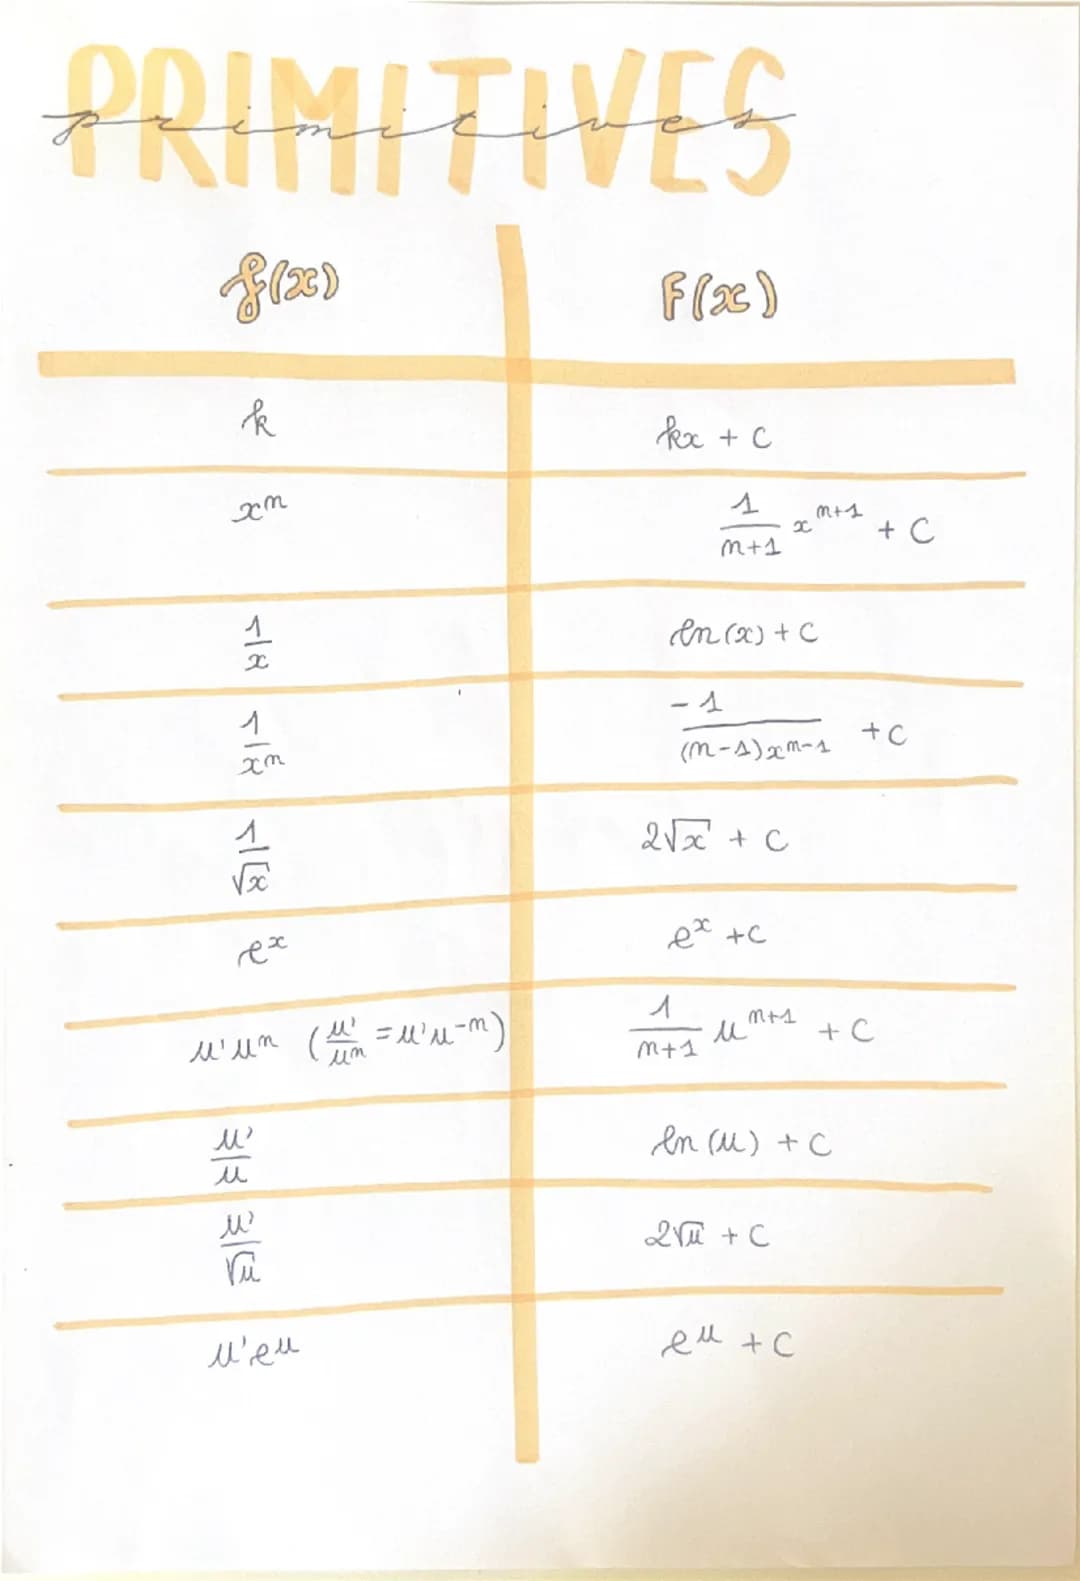 PRIMITIVES
primitives
f(x) F(x)
k kx + C
xⁿ 1/(n+1) xⁿ⁺¹ + C
1/x ln(x) + C
1/xⁿ -1/((n-1)xⁿ⁻¹) + C
1/√x 2√x + C
eˣ eˣ + C
u'uⁿ (u'/uⁿ = u'u⁻ⁿ) 1/(n+1) uⁿ⁺¹ + C
u'/u ln(u) + C
u'/√u 2√u + C
u'eᵘ eᵘ + C